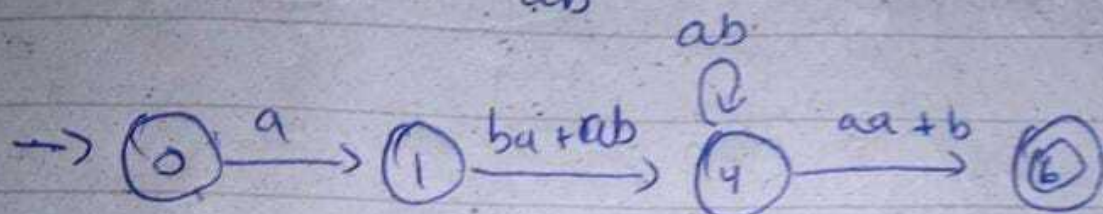 ab
ab
→ 0 a → 1 ba + ab → 4 aa + b → 6